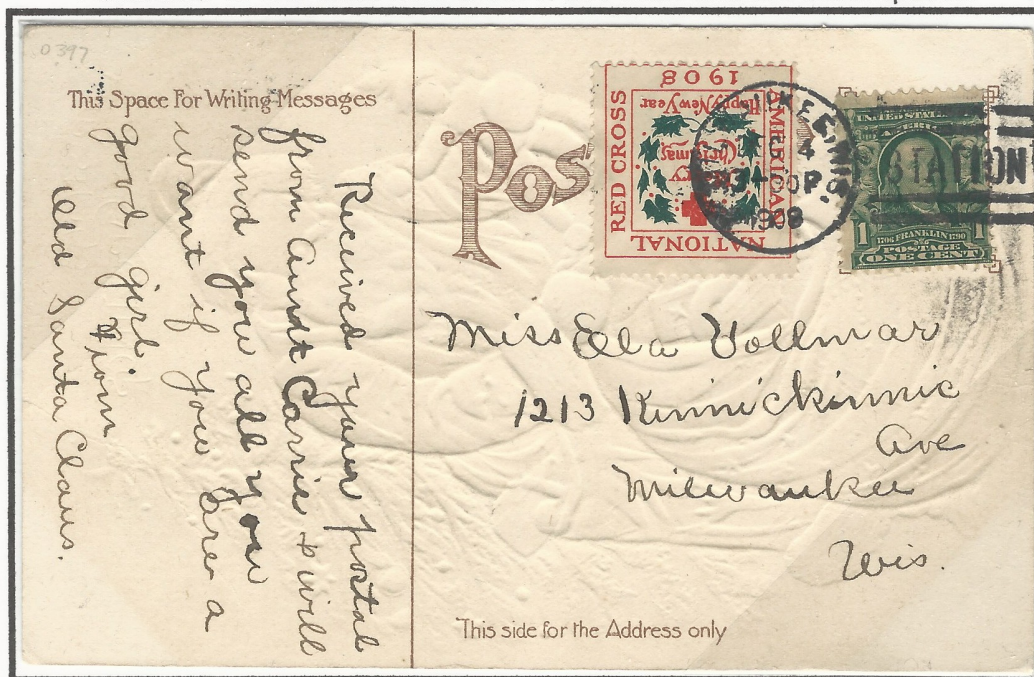 0397
This Space For Writing Messages
Received your postal
from Aundt Carrie & will
send you all you
want if you are a
good girl
From
Old Santa Claus.
Pos
1908
Happy New Year
Merry
Christmas
RED CROSS
AMERICAN
NATIONAL
4
30 P
1908
STATION
UNITED STATES
AMERICA
1 1
1706 FRANKLIN 1790
POSTAGE
ONE CENT
Miss Ella Vollmar
1213 Kinnickinnic
Ave
Milwaukee
Wis.
This side for the Address only